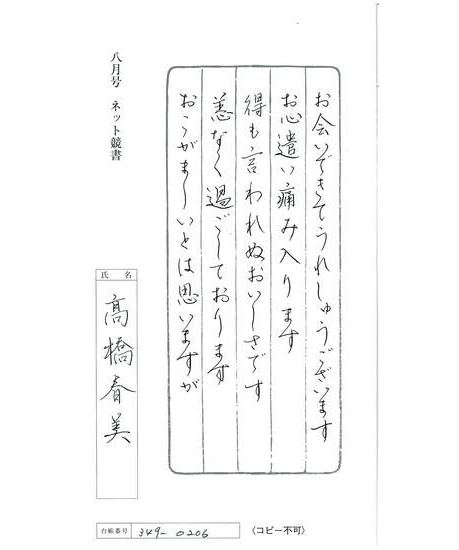 お会いできてうれしゅうございます
お心遣い痛み入ります
得も言われぬおいしさです
恙なく過ごしております
おこがましいとは思いますが
八月号 ネット競書
氏名
高橋春美
台帳番号 349-0206
〈コピー不可〉